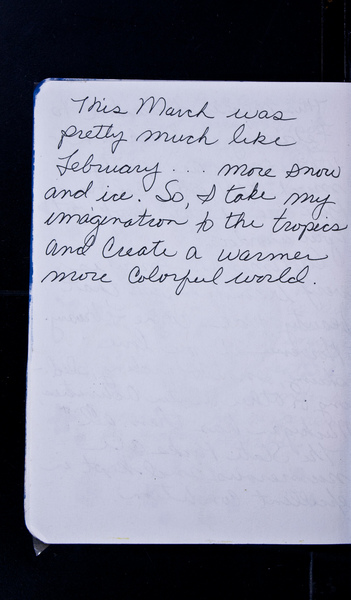 This March was
pretty much like
February... more snow
and ice. So, I take my
imagination to the tropics
and Create a warmer
more Colorful world.